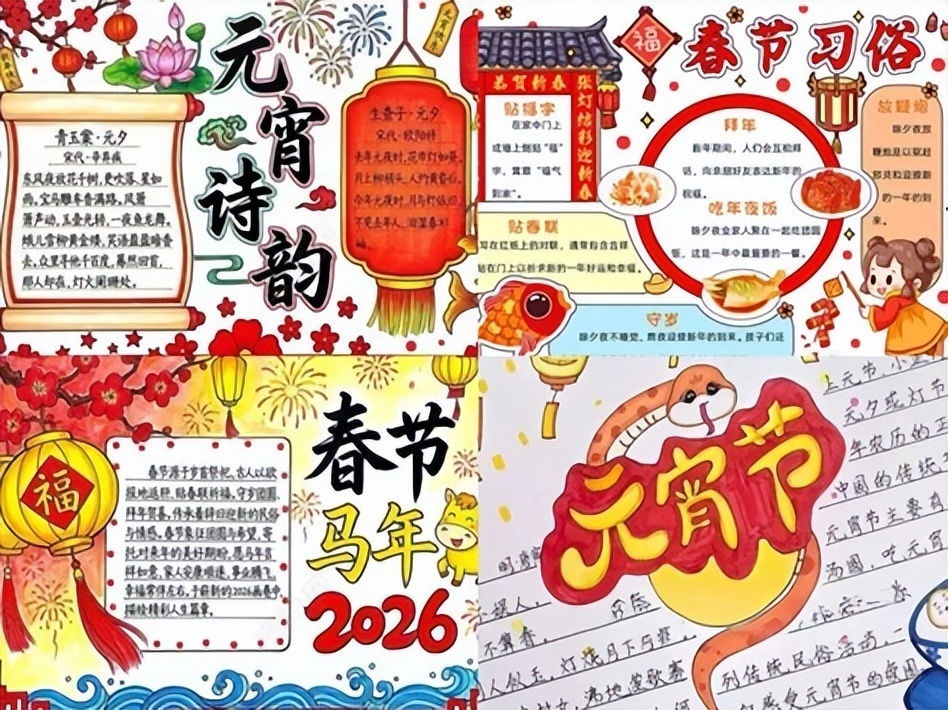 元宵诗韵
青玉案·元夕
宋代·辛弃疾
东风夜放花千树，更吹落、星如
雨。宝马雕车香满路。凤箫
声动，玉壶光转，一夜鱼龙舞。
蛾儿雪柳黄金缕，笑语盈盈暗香
去。众里寻他千百度，蓦然回首，
那人却在，灯火阑珊处。
生查子·元夕
宋代·欧阳修
去年元夜时，花市灯如昼。
月上柳梢头，人约黄昏后。
今年元夜时，月与灯依旧。
不见去年人，泪湿春衫
袖。
春节习俗
福
恭贺新春
张灯结彩迎新春
贴福字
在家中门上
或墙上倒贴“福”
字，寓意“福气
到家”。
拜年
新年期间，人们会互相拜
访，向亲朋好友表达新年的
祝福。
吃年夜饭
除夕夜全家人聚在一起吃团圆
饭，这是一年中最重要的一餐。
放鞭炮
除夕夜放
鞭炮是以驱赶
邪灵和迎接新
的一年的到
来。
贴春联
写在红纸上的对联，通常包含吉祥
贴在门上以祈求新的一年好运和幸福。
守岁
除夕夜不睡觉，熬夜迎接新年的到来。孩子们还
福
春节
马年
2026
春节源于岁首祭祀，古人以欧
报地返照，贴春联祈福，守岁团圆，
拜年贺喜，传承着辞旧迎新的民俗
与情感。春节象征团圆与希望，寄
托对来年的美好期盼，愿马年吉
祥如意，家人安康顺遂，事业腾飞，
幸福常伴左右，于崭新的2026画卷中
描绘精彩人生篇章。
元宵节
上元节、小
元夕或灯节
年农历的正
中国的传统
元宵节主要有
汤圆、吃元宵
列传统民俗活动
人似玉，灯烧月下月
满地笙歌赛